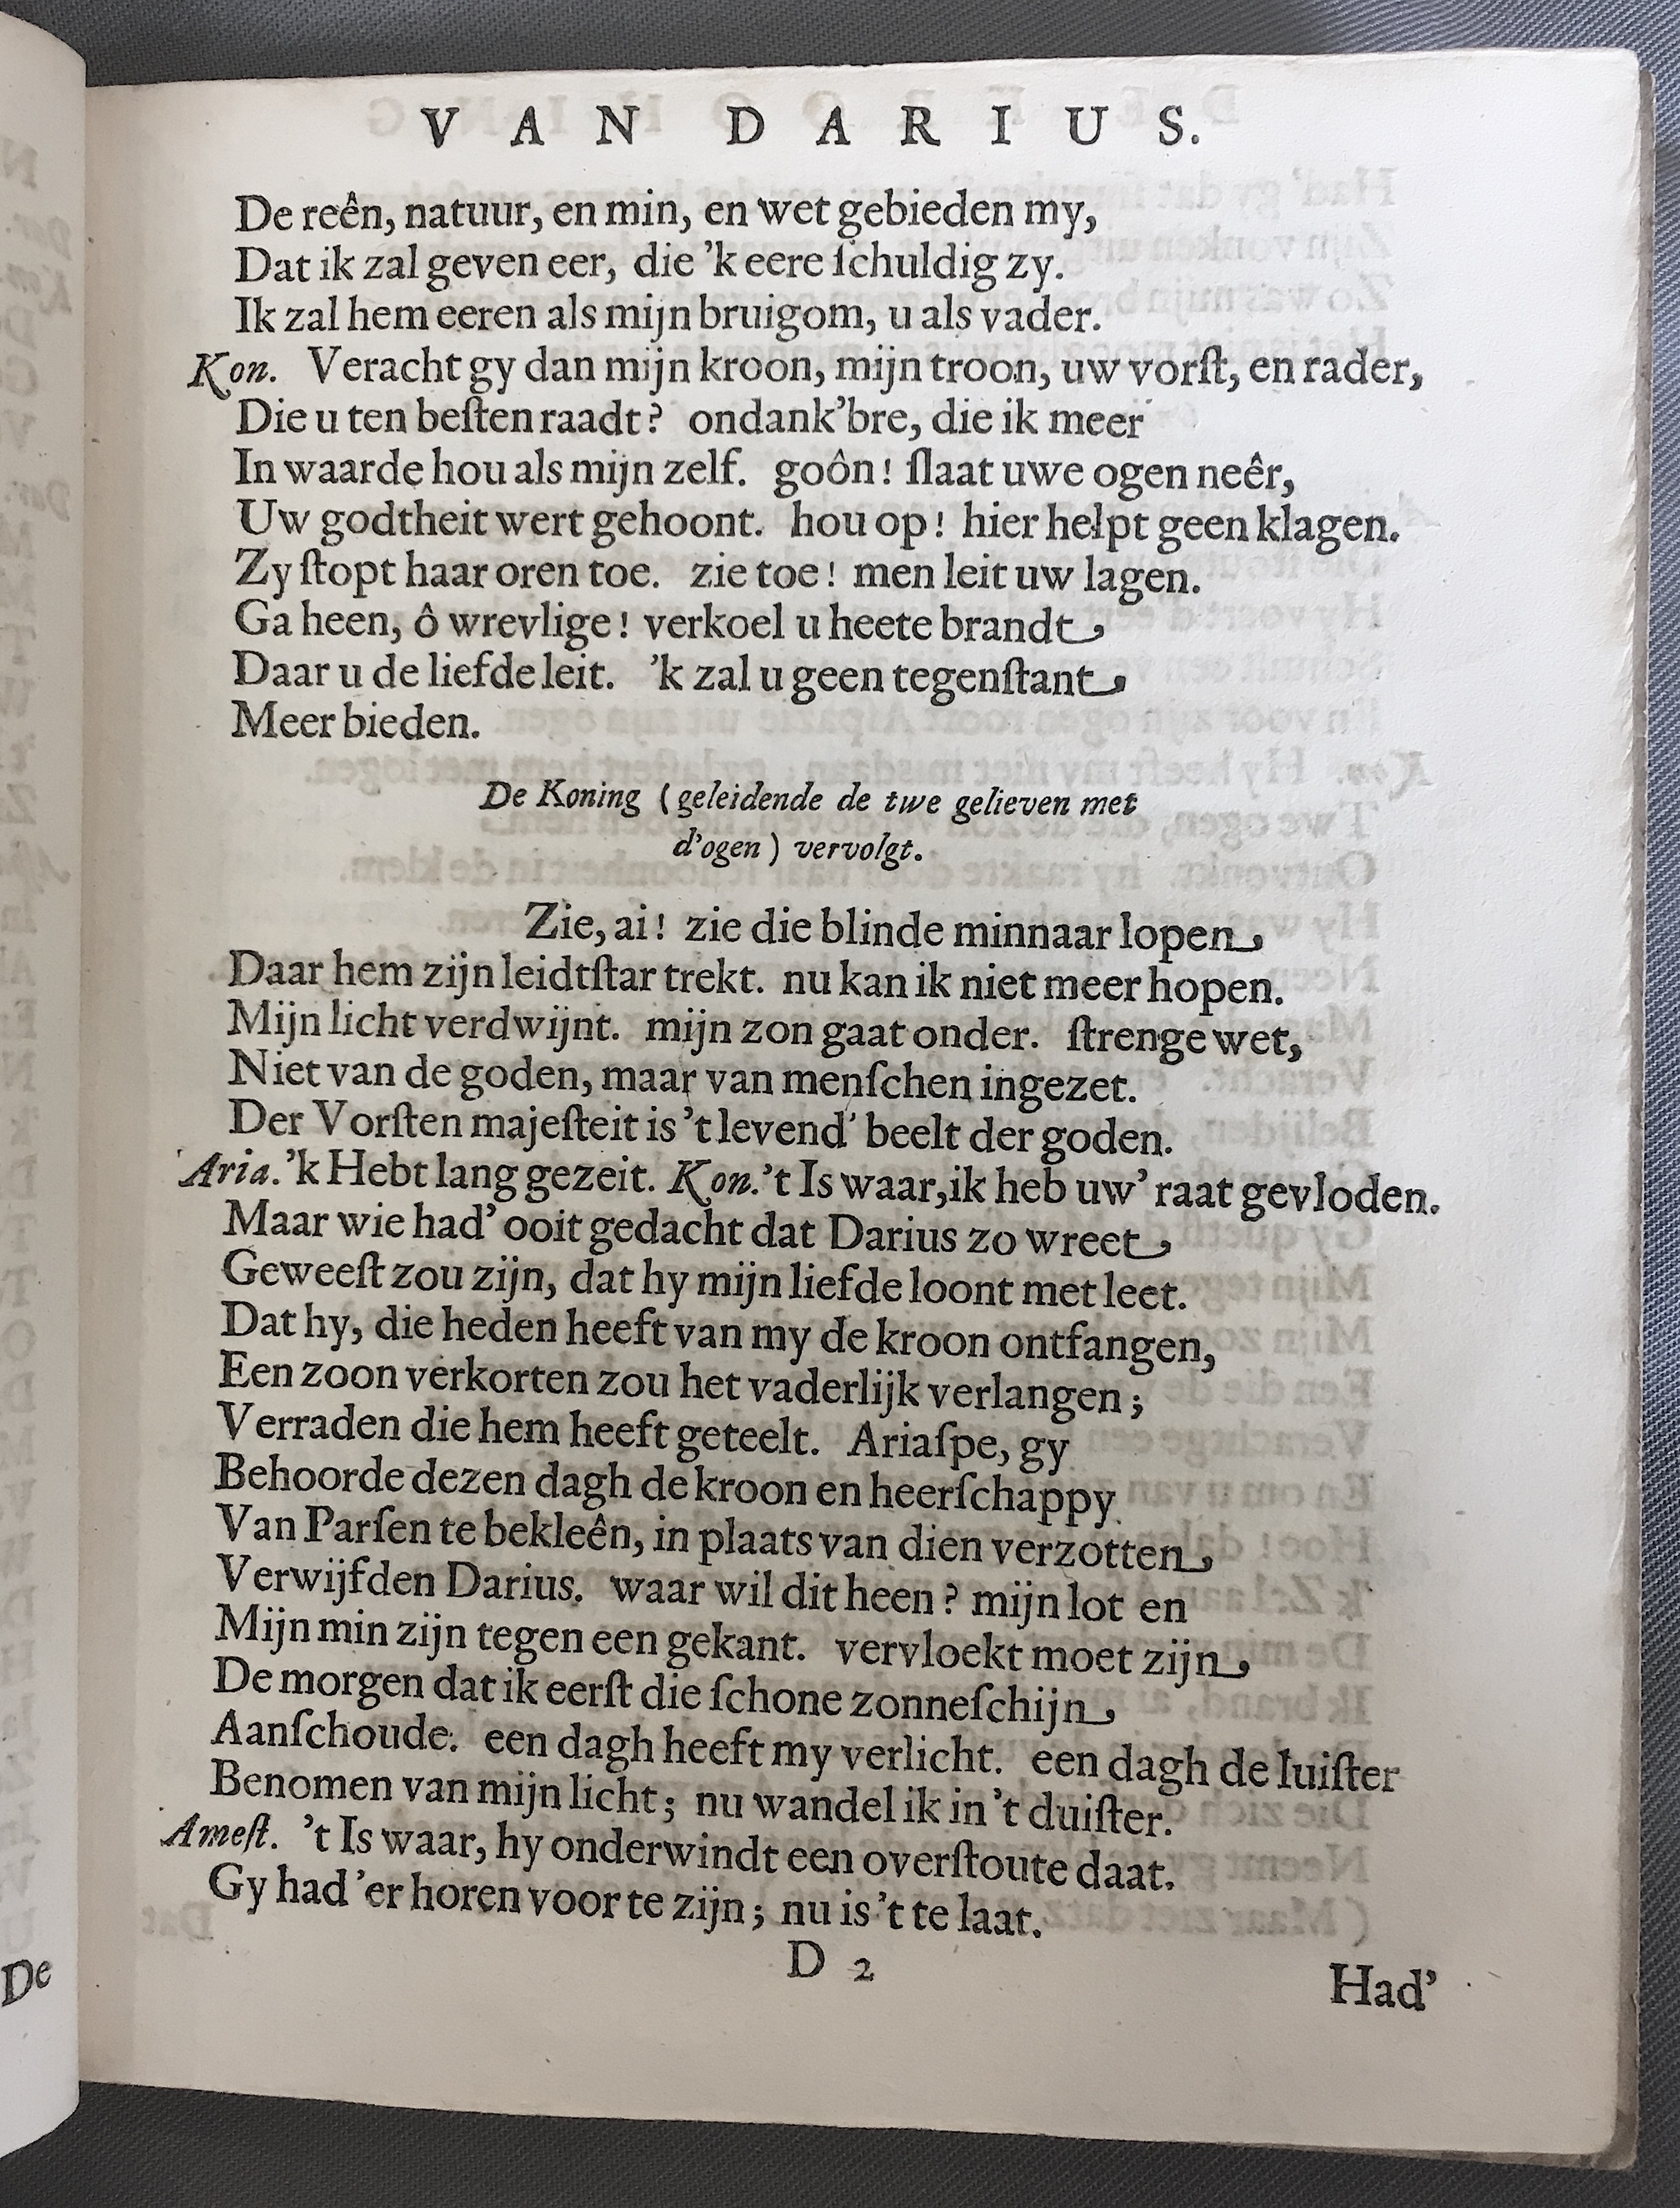 VAN DARIUS.
De reên, natuur, en min, en wet gebieden my,
Dat ik zal geven eer, die 'k eere ſchuldig zy.
Ik zal hem eeren als mijn bruigom, u als vader.
Kon. Veracht gy dan mijn kroon, mijn troon, uw vorſt, en rader,
Die u ten beſten raadt? ondank'bre, die ik meer
In waarde hou als mijn zelf. goôn! ſlaat uwe ogen neêr,
Uw godtheit wert gehoont. hou op! hier helpt geen klagen.
Zy ſtopt haar oren toe. zie toe! men leit uw lagen.
Ga heen, ô wrevlige! verkoel u heete brandt
Daar u de liefde leit. 'k zal u geen tegenſtant
Meer bieden.
De Koning (geleidende de twe gelieven met
d'ogen) vervolgt.
Zie, ai! zie die blinde minnaar lopen
Daar hem zijn leidtſtar trekt. nu kan ik niet meer hopen.
Mijn licht verdwijnt. mijn zon gaat onder. ſtrenge wet,
Niet van de goden, maar van menſchen ingezet.
Der Vorſten majeſteit is 't levend' beelt der goden.
Aria. 'k Hebt lang gezeit. Kon. 't Is waar, ik heb uw' raat gevloden.
Maar wie had' ooit gedacht dat Darius zo wreet
Geweeſt zou zijn, dat hy mijn liefde loont met leet.
Dat hy, die heden heeft van my de kroon ontfangen,
Een zoon verkorten zou het vaderlijk verlangen;
Verraden die hem heeft geteelt. Ariaſpe, gy
Behoorde dezen dagh de kroon en heerſchappy
Van Parſen te bekleên, in plaats van dien verzotten
Verwijfden Darius. waar wil dit heen? mijn lot en
Mijn min zijn tegen een gekant. vervloekt moet zijn
De morgen dat ik eerſt die ſchone zonneſchijn
Aanſchoude. een dagh heeft my verlicht. een dagh de luiſter
Benomen van mijn licht; nu wandel ik in 't duiſter.
Ameſt. 't Is waar, hy onderwindt een overſtoute daat.
Gy had 'er horen voor te zijn; nu is 't te laat.
D 2
Had'
De